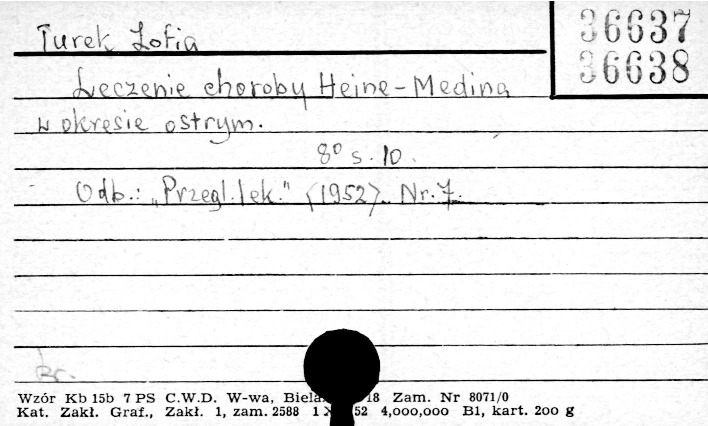 Turek Zofia
36637
36638
Leczenie choroby Heine-Medina
w okresie ostrym.
8° s. 10.
Odb.: „Przegl. lek." (1952). Nr. 7.
Wzór Kb 15b 7 PS C.W.D. W-wa, Biela 18 Zam. Nr 8071/0
Kat. Zakł. Graf., Zakł. 1, zam. 2588 1 X 52 4,000,000 B1, kart. 200 g